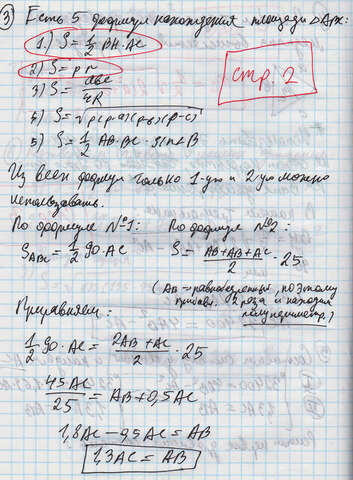 3) Есть 5 формул нахождения площади △АВС:
1.) S = 1/2 BH·AC
2) S = pr
стр. 2
3) S = abc/4R
4) S = √p(p-a)(p-b)(p-c)
5) S = 1/2 AB·BC·sin∠B
Из всех формул только 1-ую и 2-ую можно
использовать.
По формуле №1: По формуле №2:
S_ABC = 1/2 90·AC S = (AB+AB+AC)/2 · 25
равнобедренный, поэтому
прибавл. 2 раза и находим
полупериметр.)
Приравняем:
1/2 90·AC = (2AB+AC)/2 · 25
45AC/25 = AB+0,5AC
1,8AC-0,5AC = AB
1,3AC = AB